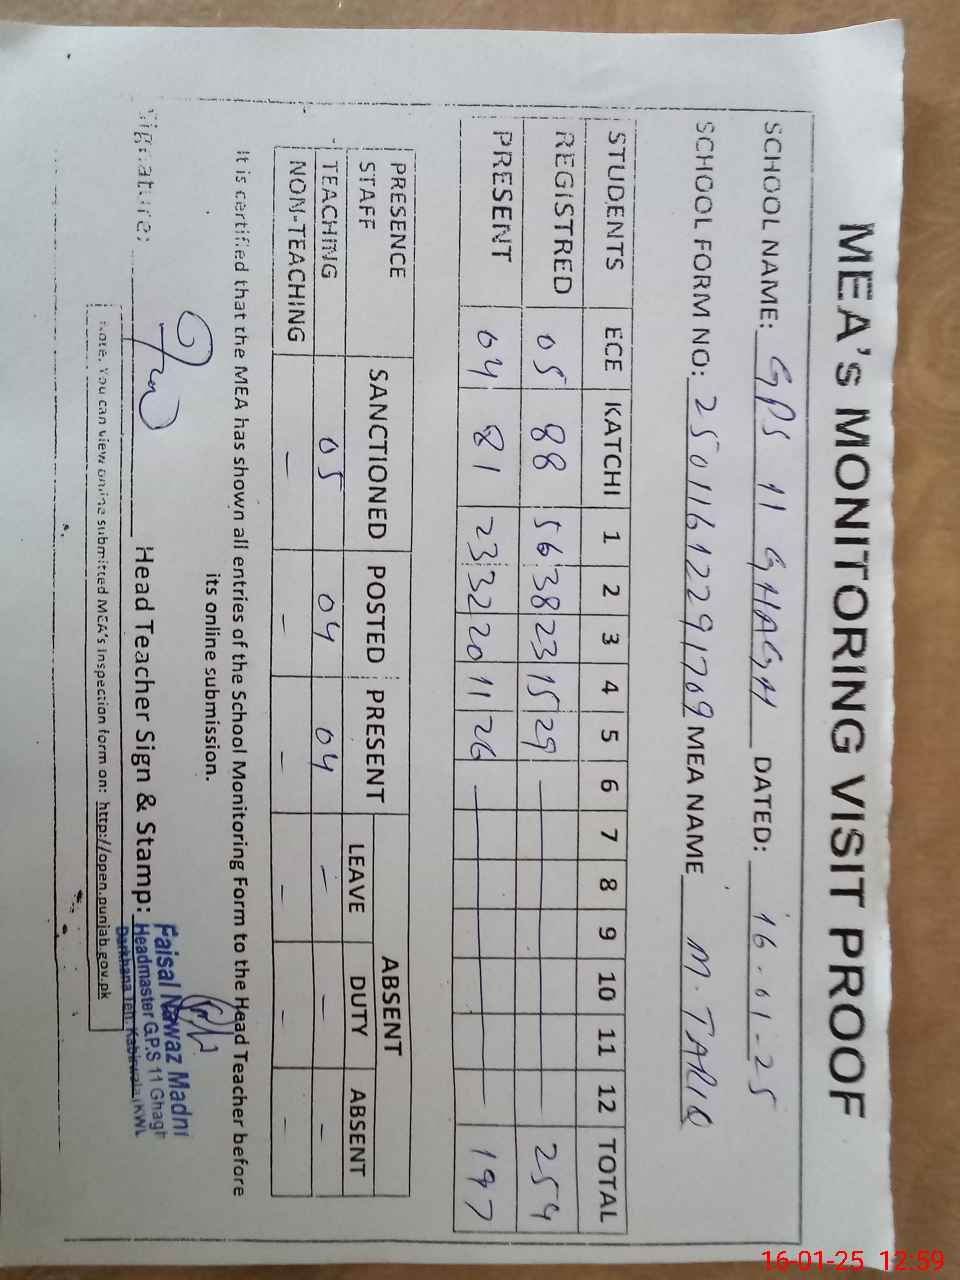 MEA's MONITORING VISIT PROOF
SCHOOL NAME: GPS 11 GHAGH DATED: 16-01-25
SCHOOL FORM NO: 25011612291709 MEA NAME M. TARIQ
STUDENTS ECE KATCHI 1 2 3 4 5 6 7 8 9 10 11 12 TOTAL
REGISTRED 05 88 56 38 23 15 29 254
PRESENT 04 81 23 32 20 11 26 197
PRESENCE STAFF SANCTIONED POSTED PRESENT ABSENT
LEAVE DUTY ABSENT
TEACHING 05 04 04 - - -
NON-TEACHING - - - - - -
It is certified that the MEA has shown all entries of the School Monitoring Form to the Head Teacher before
its online submission.
Signature: Head Teacher Sign & Stamp:
Faisal Nawaz Madni
Headmaster G.P.S 11 Ghagh
Darkhana Teh. Kabirwala (KWL
Note. You can view online submitted MEA's Inspection form on: http://open.punjab.gov.pk
16-01-25 12:59